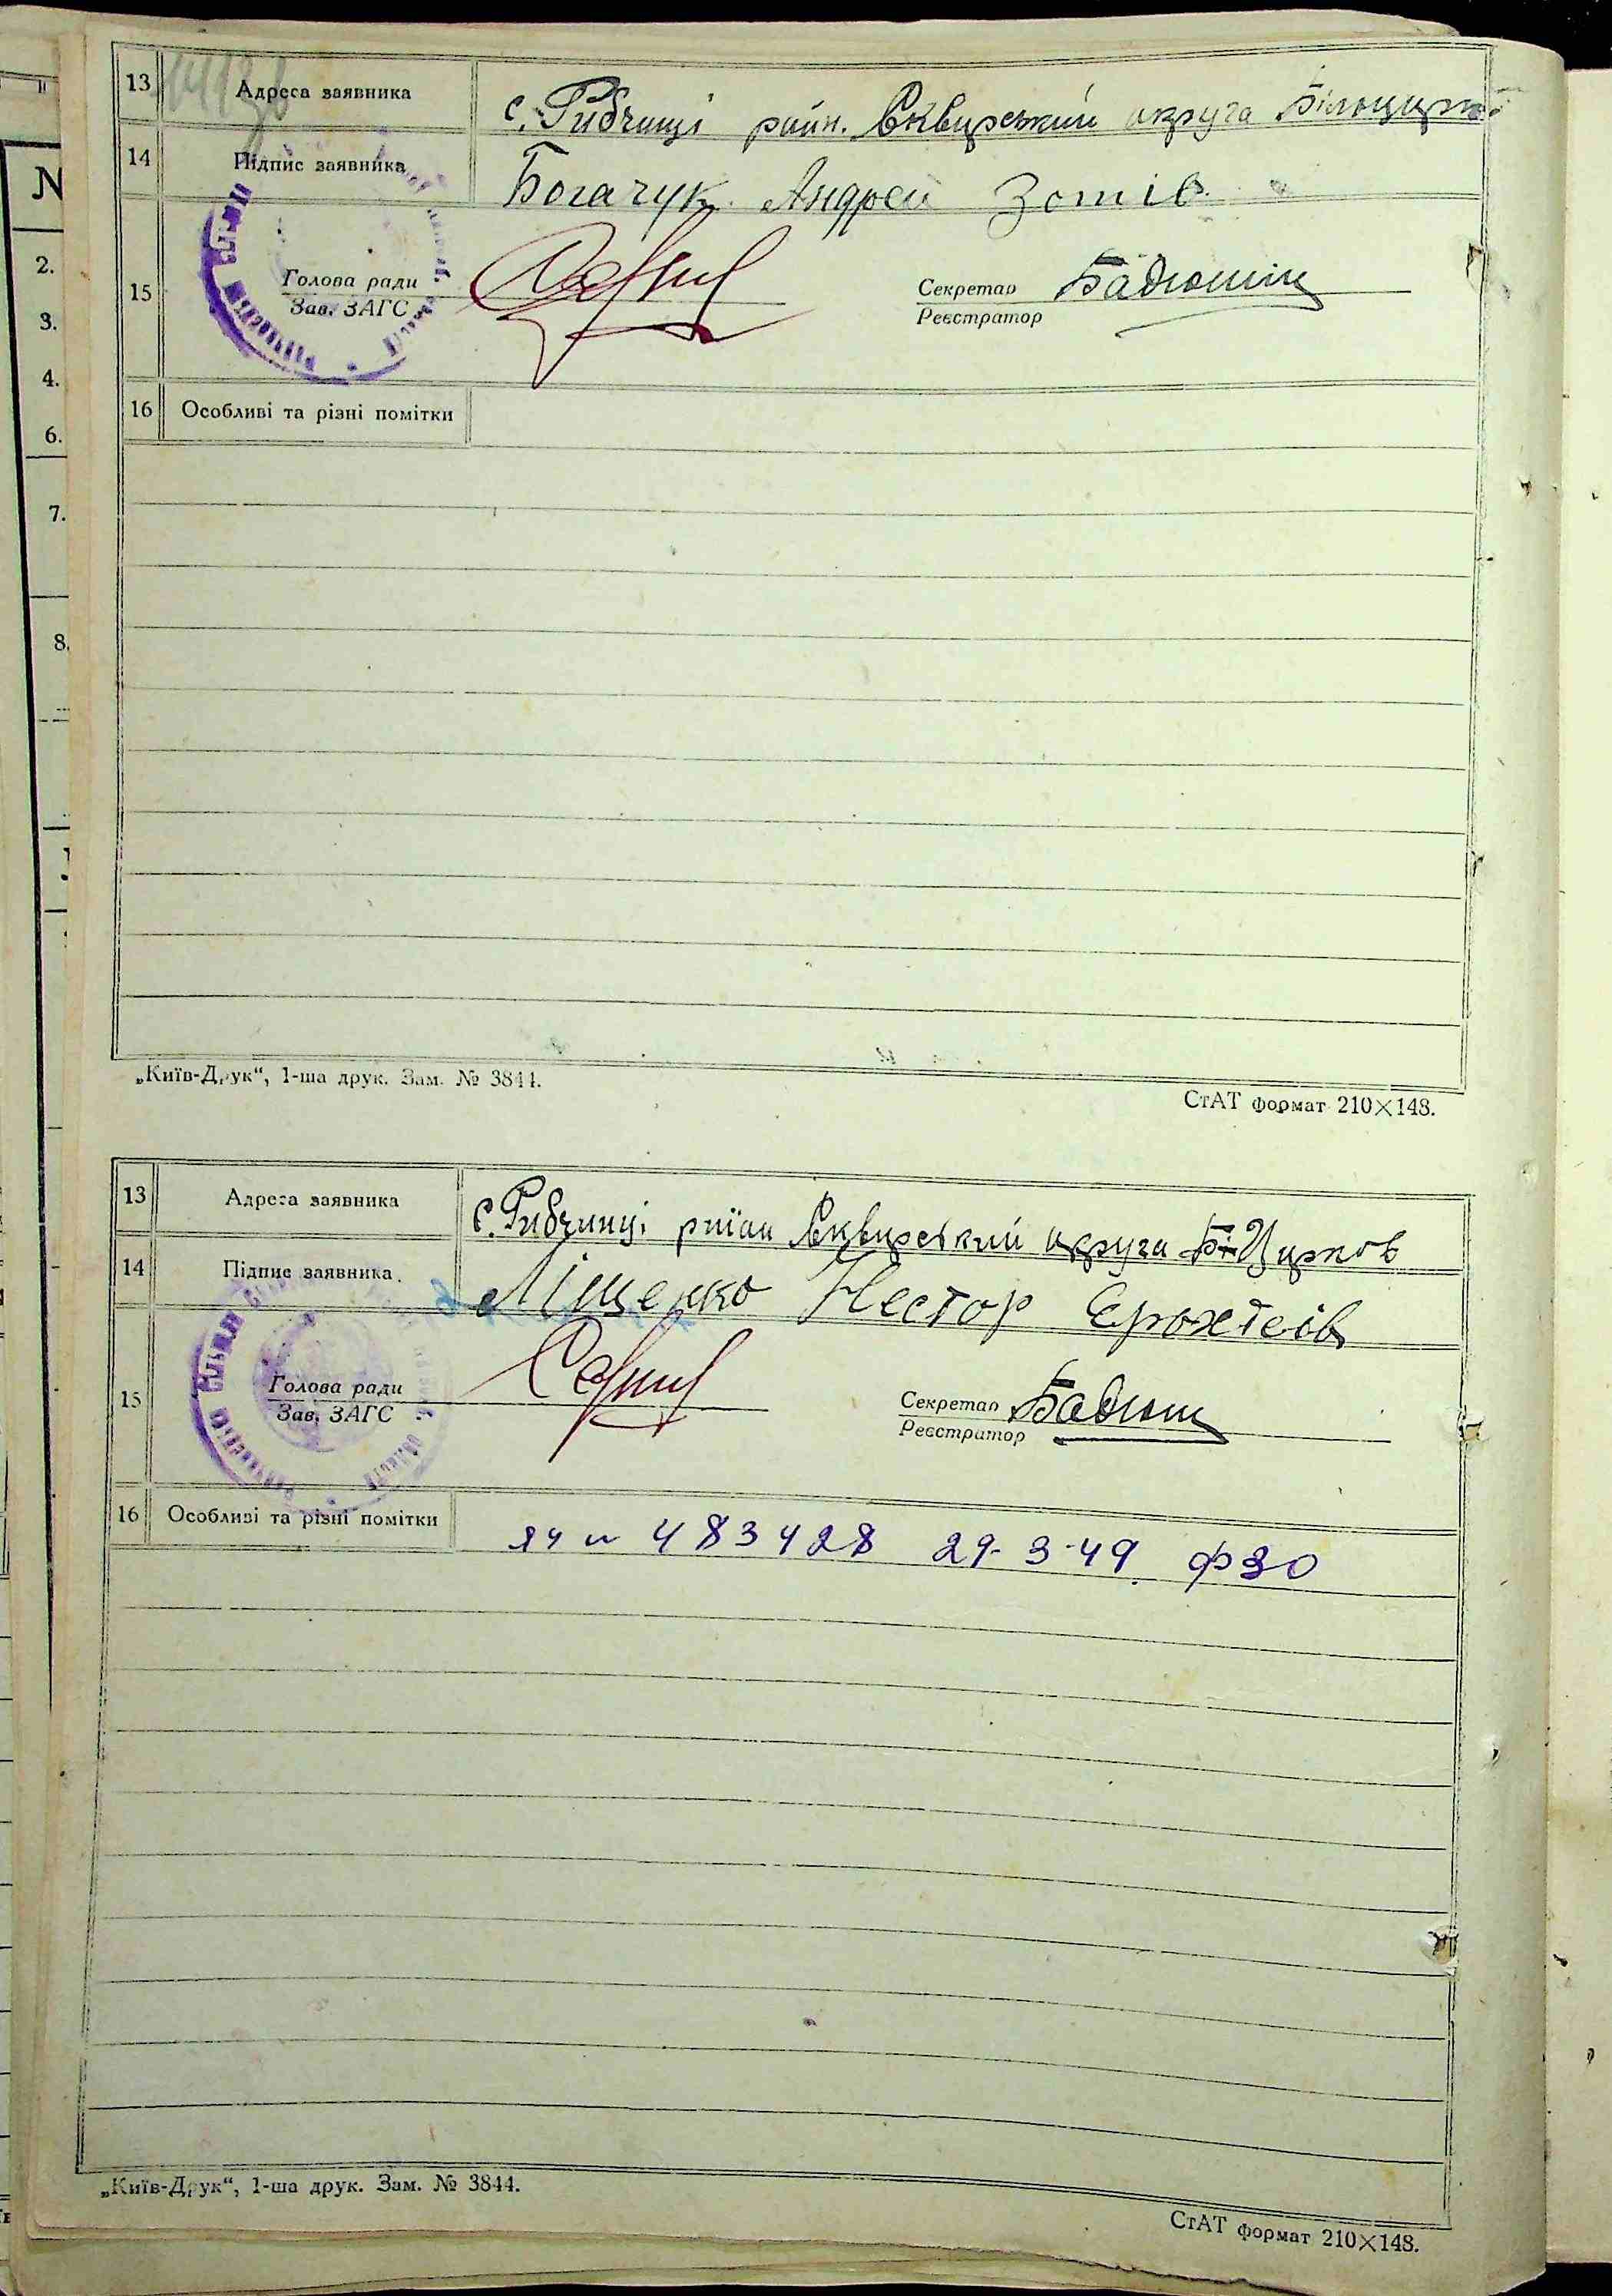 13 Адреса заявника с. Рибчинці район. Сквирський округа Білоцирк
14 Підпис заявника Богачук Андрей Зотів
15 Голова ради Секретар Бадюшін
Зав. ЗАГС Реєстратор
16 Особливі та різні помітки
„Київ-Друк“, 1-ша друк. Зам. № 3844.
СтАТ формат 210×148.
13 Адреса заявника с. Рибчинці район Сквирський округа Б-Цирков
14 Підпис заявника Міщенко Нестор Єрохтеів
15 Голова ради Секретар Бадюш
Зав. ЗАГС Реєстратор
16 Особливі та різні помітки ЯЧ № 483428 29-3-49. ФЗО
„Київ-Друк“, 1-ша друк. Зам. № 3844.
СтАТ формат 210×148.
N
2.
3.
4.
6.
7.
8.